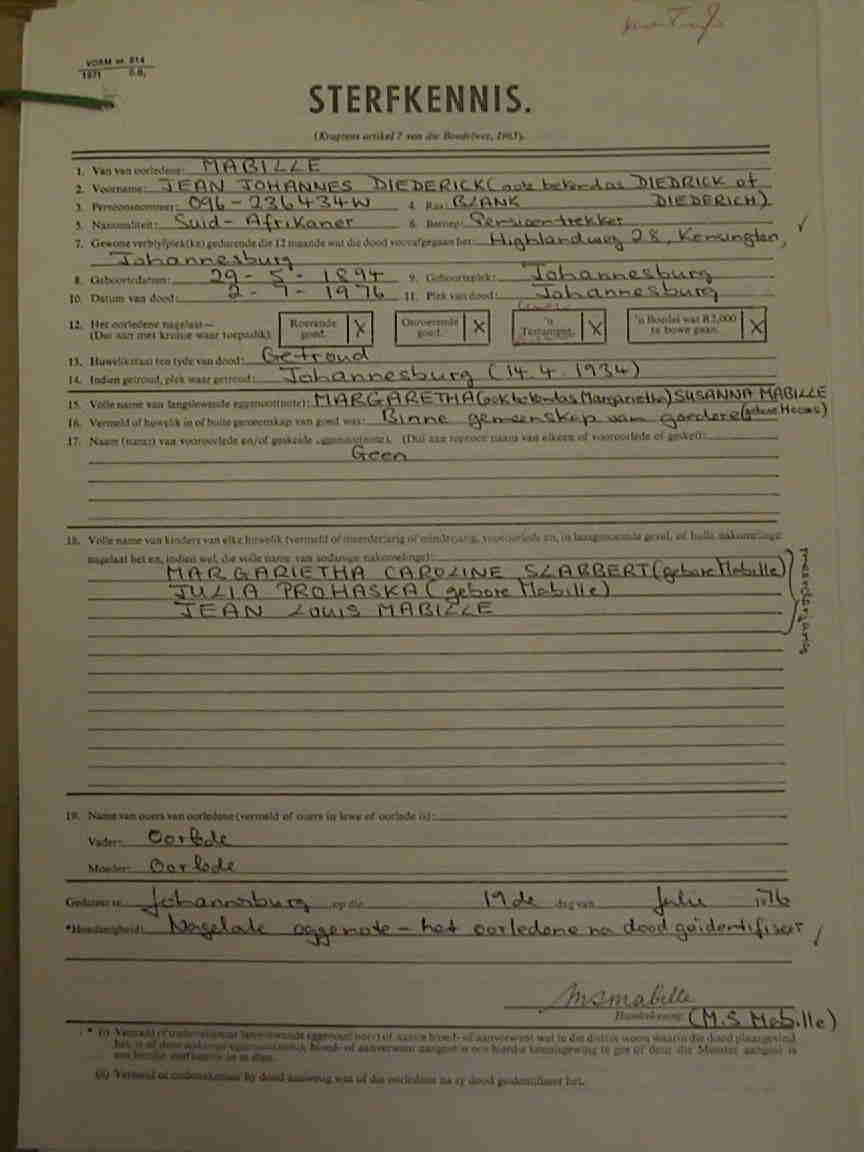 VORM nr. 614
1971 D.B.
STERFKENNIS.
(Kragtens artikel 7 van die Boedelwet, 1965).
1. Van van oorledene: MABILLE
2. Voorname: JEAN JOHANNES DIEDERICK (ook bekend as DIEDRICK of
3. Persoonsnommer: 096-236434W 4. Ras: BLANK DIEDERICH)
5. Nasionaliteit: Suid-Afrikaner 6. Beroep: Pensioentrekker
7. Gewone verblyfplek(ke) gedurende die 12 maande wat die dood voorafgegaan het: Highlandweg 28, Kensington,
Johannesburg
8. Geboortedatum: 29-5-1894 9. Geboorteplek: Johannesburg
10. Datum van dood: 2-7-1976 11. Plek van dood: Johannesburg
12. Het oorledene nagelaat—
(Dui aan met kruisie waar toepaslik) Roerende goed. X Onroerende goed. X 'n Testament. X 'n Boedel wat R3,000 te bowe gaan. X
13. Huwelikstaat ten tyde van dood: Getroud
14. Indien getroud, plek waar getroud: Johannesburg (14.4.1934)
15. Volle name van langslewende eggenoot(note): MARGARETHA (ook bekend as Margarietha) SUSANNA MABILLE
16. Vermeld of huwelik in of buite gemeenskap van goed was: Binne gemeenskap van goedere (gebore
17. Naam (name) van vooroorlede en/of geskeide eggenoot(note). (Dui aan teenoor naam van elkeen of vooroorlede of geskei):
Geen
18. Volle name van kinders van elke huwelik (vermeld of meerderjarig of minderjarig, vooroorlede en, in laasgenoemde geval, of hulle nakomelinge
nagelaat het en, indien wel, die volle name van sodanige nakomelinge):
MARGARIETHA CAROLINE SLABBERT (gebore Mabille)
JULIA PROHASKA (gebore Mabille)
JEAN LOUIS MABILLE
meerderjarig
19. Name van ouers van oorledene (vermeld of ouers in lewe of oorlede is):
Vader: Oorlede
Moeder: Oorlede
Gedateer te Johannesburg op die 19de dag van Julie 1976
*Hoedanigheid: Nagelate eggenote - het oorledene na dood geïdentifiseer
MSMabille
Handtekening (M.S Mabille)
* (i) Vermeld of ondertekenaar langslewende eggenoot(note) of naaste bloed- of aanverwant wat in die distrik woon waarin die dood plaasgevind
(ii) Vermeld of ondertekenaar by dood aanwesig was of die oorledene na sy dood geïdentifiseer het.